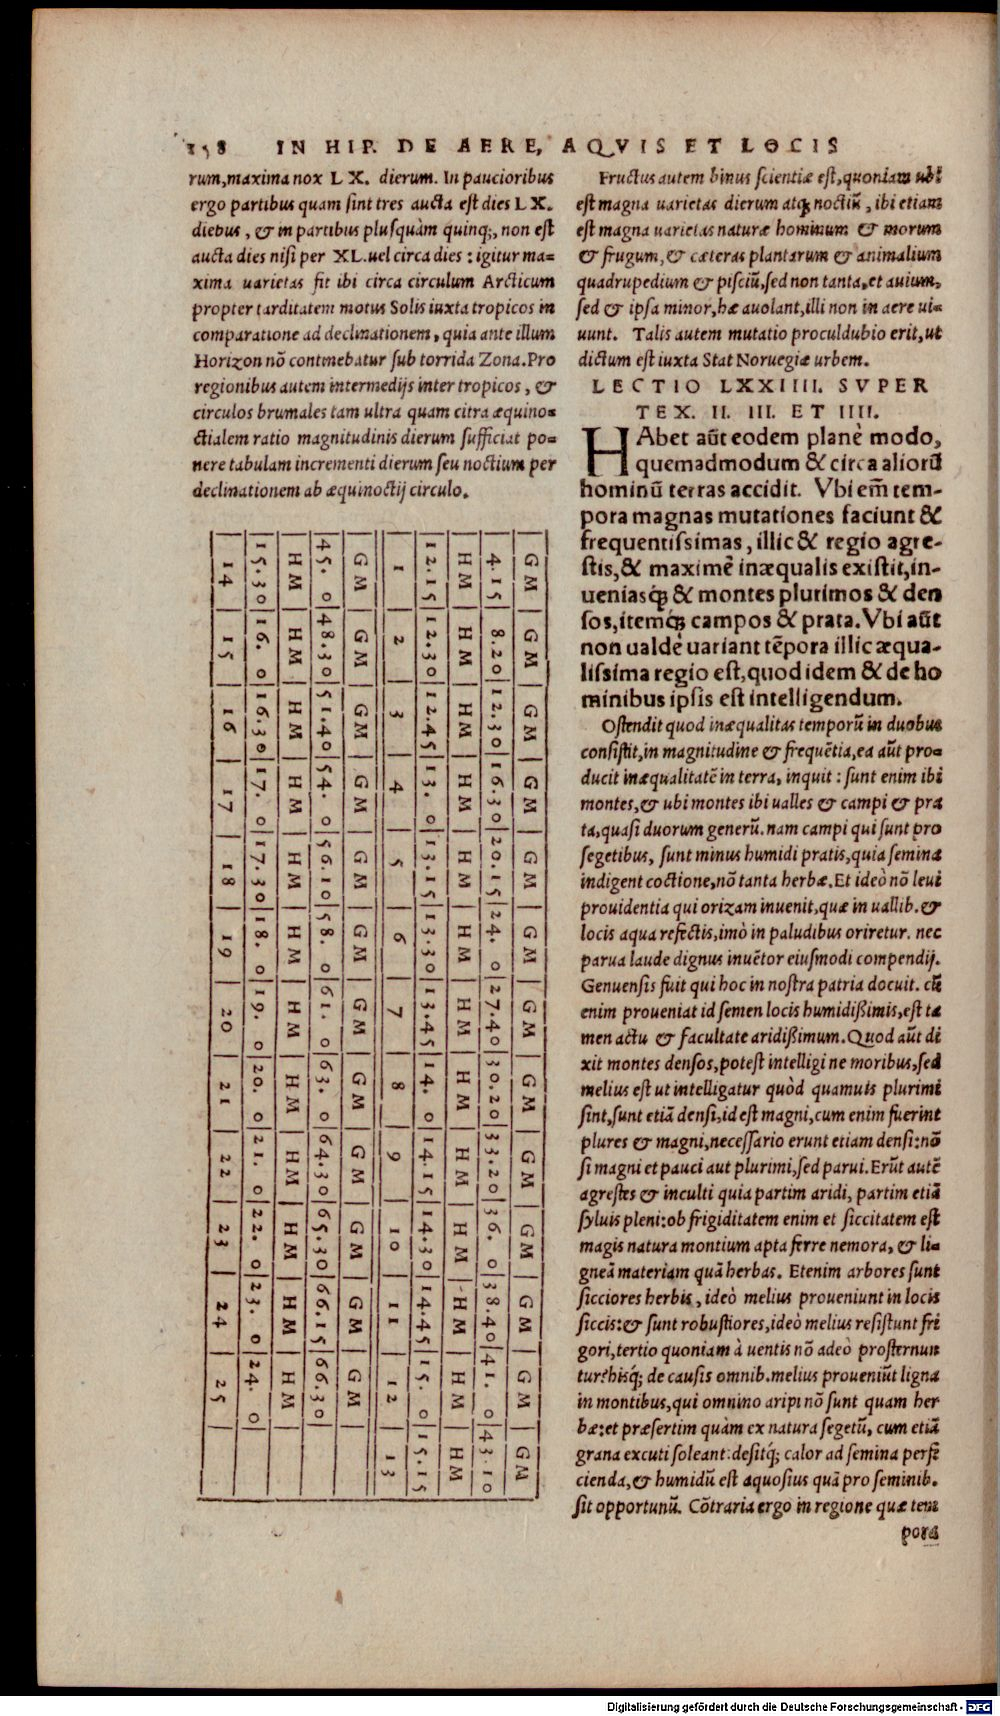 158 IN HIP. DE AERE, AQVIS ET LOCIS
rum, maxima nox LX. dierum. In paucioribus
ergo partibus quam sint tres aucta est dies LX.
diebus, & in partibus plusquàm quinq;, non est
aucta dies nisi per XL. uel circa dies: igitur ma=
xima uarietas fit ibi circa circulum Arcticum
propter tarditatem motus Solis iuxta tropicos in
comparatione ad declinationem, quia ante illum
Horizon nõ continebatur sub torrida Zona. Pro
regionibus autem intermedijs inter tropicos, &
circulos brumales tam ultra quam citra æquino=
ctialem ratio magnitudinis dierum sufficiat po=
nere tabulam incrementi dierum seu noctium per
declinationem ab æquinoctij circulo.
G M | G M | G M | G M | G M | G M | G M | G M | G M | G M | G M | G M | G M
4.15 | 8.20 | 12.30 | 16.30 | 20.15 | 24. 0 | 27.40 | 30.20 | 33.20 | 36. 0 | 38.40 | 41. 0 | 43.10
H M | H M | H M | H M | H M | H M | H M | H M | H M | H M | H M | H M | H M
12.15 | 12.30 | 12.45 | 13. 0 | 13.15 | 13.30 | 13.45 | 14. 0 | 14.15 | 14.30 | 14.45 | 15. 0 | 15.15
1 | 2 | 3 | 4 | 5 | 6 | 7 | 8 | 9 | 10 | 11 | 12 | 13
G M | G M | G M | G M | G M | G M | G M | G M | G M | G M | G M | G M
45. 0 | 48.30 | 51.40 | 54. 0 | 56.10 | 58. 0 | 61. 0 | 63. 0 | 64.30 | 65.30 | 66.15 | 66.30
H M | H M | H M | H M | H M | H M | H M | H M | H M | H M | H M | H M
15.30 | 16. 0 | 16.30 | 17. 0 | 17.30 | 18. 0 | 19. 0 | 20. 0 | 21. 0 | 22. 0 | 23. 0 | 24. 0
14 | 15 | 16 | 17 | 18 | 19 | 20 | 21 | 22 | 23 | 24 | 25
Fructus autem binus scientiæ est, quoniam ubi
est magna uarietas dierum atq; noctiũ, ibi etiam
est magna uarietas naturæ hominum & morum
& frugum, & cæteras plantarum & animalium
quadrupedium & pisciũ, sed non tanta, et auium,
sed & ipsa minor, hæ auolant, illi non in aere ui=
uunt. Talis autem mutatio proculdubio erit, ut
dictum est iuxta Stat Noruegiæ urbem.
LECTIO LXXIIII. SVPER
TEX. II. III. ET IIII.
HAbet aũt eodem planè modo,
quemadmodum & circa aliorũ
hominũ terras accidit. Vbi em̃ tem-
pora magnas mutationes faciunt &
frequentissimas, illic & regio agre-
stis, & maximè inæqualis existit, in-
ueniasq; & montes plurimos & den
sos, itemq; campos & prata. Vbi aũt
non ualdè uariant tẽpora illic æqua-
lissima regio est, quod idem & de ho
minibus ipsis est intelligendum.
Ostendit quod inæqualitas temporũ in duobus
consistit, in magnitudine & frequẽtia, ea aũt pro=
ducit inæqualitatẽ in terra, inquit: sunt enim ibi
montes, & ubi montes ibi ualles & campi & pra
ta, quasi duorum generũ. nam campi qui sunt pro
segetibus, sunt minus humidi pratis, quia semina
indigent coctione, nõ tanta herbæ. Et ideò nõ leui
prouidentia qui orizam inuenit, quæ in uallib. &
locis aqua refectis, imò in paludibus oriretur. nec
parua laude dignus inuẽtor eiusmodi compendij.
Genuensis fuit qui hoc in nostra patria docuit. cũ
enim proueniat id semen locis humidißimis, est ta
men actu & facultate aridißimum. Quod aũt di
xit montes densos, potest intelligi ne moribus, sed
melius est ut intelligatur quòd quamuis plurimi
sint, sunt etiã densi, id est magni, cum enim fuerint
plures & magni, necessario erunt etiam densi: nõ
si magni et pauci aut plurimi, sed parui. Erũt autẽ
agrestes & inculti quia partim aridi, partim etiã
syluis pleni: ob frigiditatem enim et siccitatem est
magis natura montium apta ferre nemora, & li=
gneã materiam quã herbas. Etenim arbores sunt
sicciores herbis, ideò melius proueniunt in locis
siccis: & sunt robustiores, ideò melius resistunt fri
gori, tertio quoniam à uentis nõ adeò prosternun
tur: hisq; de causis omnib. melius proueniũt ligna
in montibus, qui omnino aripi nõ sunt quam her
bæ: et præsertim quàm ex natura segetũ, cum etiã
grana excuti soleant: desitq; calor ad semina perfi
cienda, & humidũ est aquosius quã pro seminib.
sit opportunũ. Cõtraria ergo in regione quæ tem
pora
Digitalisierung gefördert durch die Deutsche Forschungsgemeinschaft - DFG